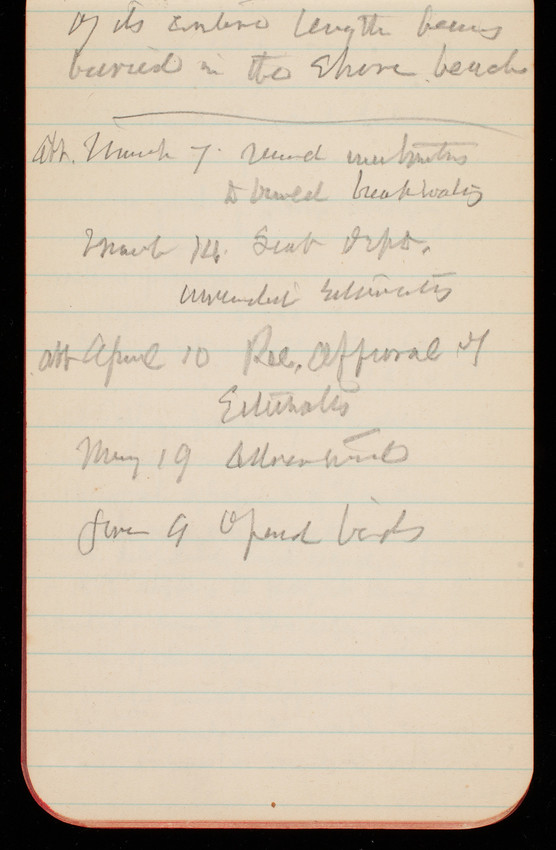 of its entire length being
buried in the Shore beach
Abt. March 7. received instructions
to build breakwater
March 14. Sent Dept.
amended Estimates
abt April 10 Rec. Approval of
Estimates
May 19 Advertised
June 9 Opened bids